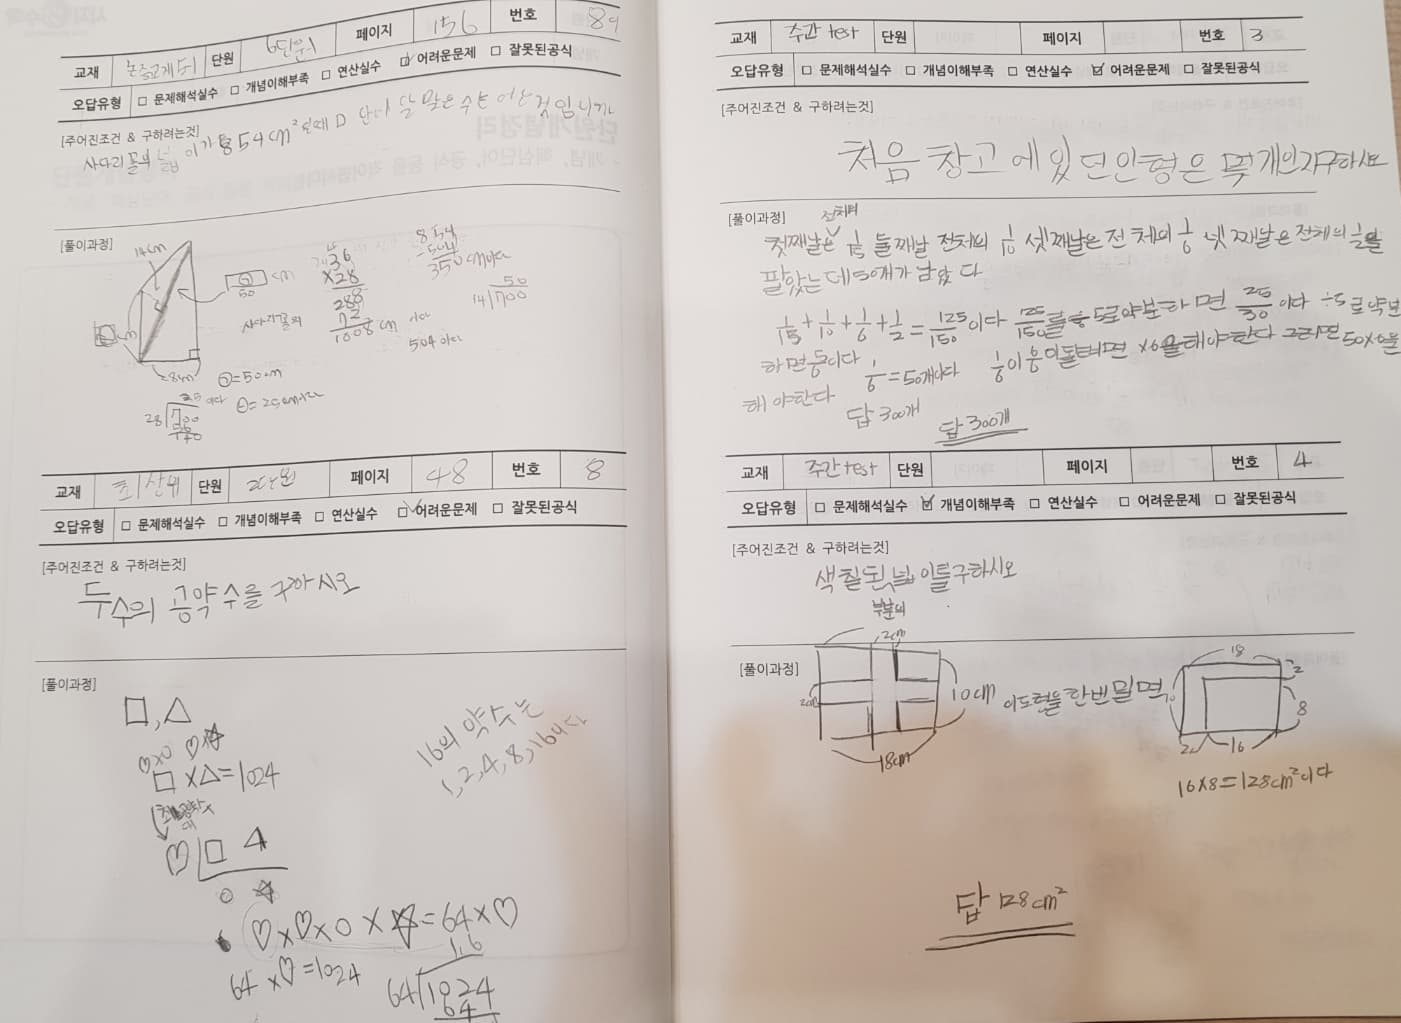 교재 단원 6단원 페이지 156 번호 89
오답유형 □ 문제해석실수 □ 개념이해부족 □ 연산실수 ☑ 어려운문제 □ 잘못된공식
[주어진조건 & 구하려는것]
사다리꼴의 넓이가 854cm² 일때 □ 안에 알맞은 수는 어느것입니까
[풀이과정]
14cm
cm
50
28cm
36
×28
288
72
1008cm
사다리꼴의
854
-504
350cm
504이다
50
14)700
=50cm
25 이다
28)700
56
140
교재 최상위 단원 2단원 페이지 48 번호 8
오답유형 □ 문제해석실수 □ 개념이해부족 □ 연산실수 ☑ 어려운문제 □ 잘못된공식
[주어진조건 & 구하려는것]
두수의 공약수를 구하시오
[풀이과정]
□, △
♡×○ ♡×☆
□×△=1024
♡)□ △
○ ☆
♡×♡×○×☆=64×♡
64×♡=1024
16
64)1024
64
16의 약수는
1,2,4,8,16이다
교재 주간 test 단원 페이지 번호 3
오답유형 □ 문제해석실수 □ 개념이해부족 □ 연산실수 ☑ 어려운문제 □ 잘못된공식
[주어진조건 & 구하려는것]
처음 창고에 있던 인형은 몇 개인지구하시오
[풀이과정]
전체의
첫째날은 1/15 둘째날 전체의 1/10 셋째날은 전체의 1/6 넷째날은 전체의 1/2을
팔았는데 50개가 남았다
1/15+1/10+1/6+1/2=125/150이다 125/150를 ÷5로약분하면 25/30이다 ÷5로 약분
하면 5/6이다 1/6=50개이다 1/6이 6/6이될려면 ×6을해야한다 그러면 50×6을
해야한다 답 300개
답 300개
교재 주간 test 단원 페이지 번호 4
오답유형 □ 문제해석실수 ☑ 개념이해부족 □ 연산실수 □ 어려운문제 □ 잘못된공식
[주어진조건 & 구하려는것]
색칠된 넓이를구하시오
부분의
[풀이과정]
2cm
2cm
10cm
18cm
이도형을 한번 밀면
18
2
10
8
2
16
16×8=128cm²이다
답 128cm²